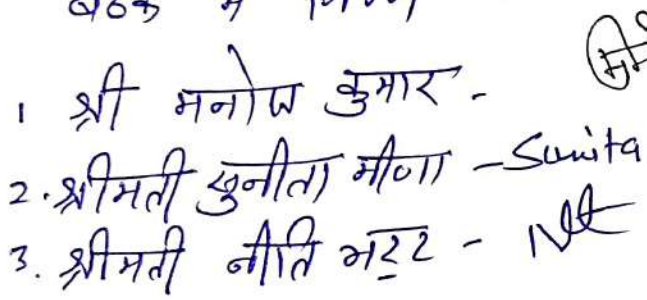 बैठक में
1 श्री मनोज कुमार -
2. श्रीमती सुनीता मीणा - Sunita
3. श्रीमती नीति भट्ट -